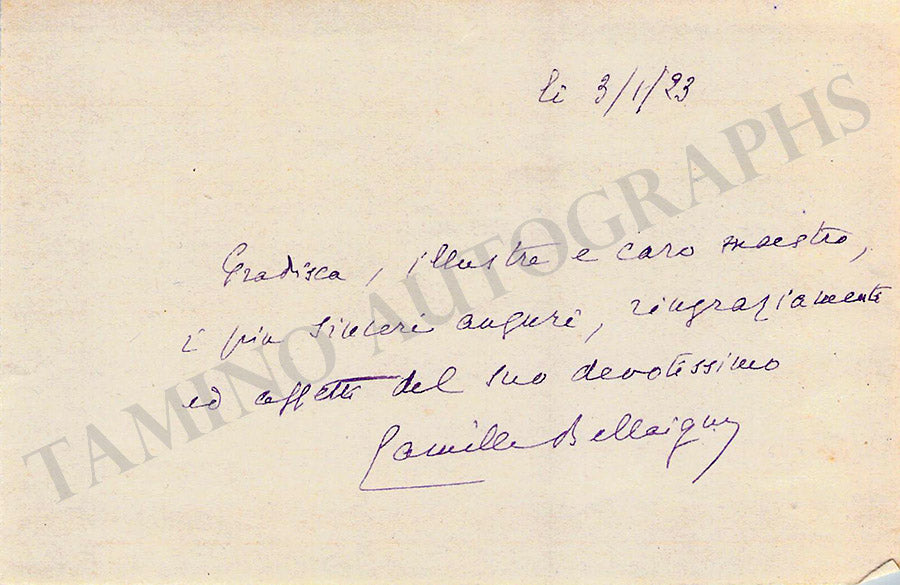 li 3/1/23
Gradisca, illustre e caro maestro,
i più sinceri auguri, ringraziamenti
ed affetti del suo devotissimo
Camille Bellaigue
TAMINO AUTOGRAPHS